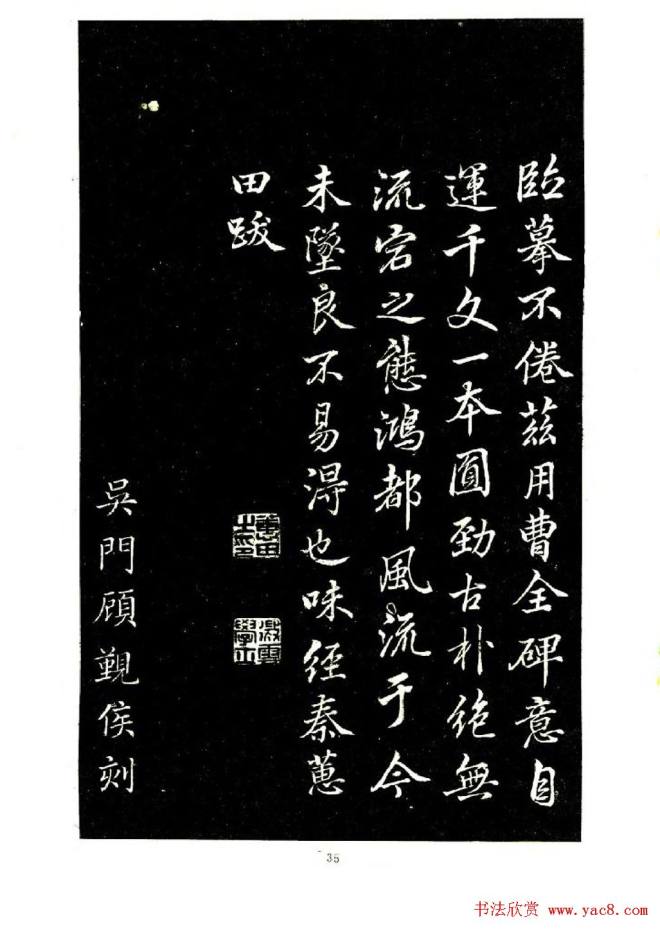 臨摹不倦茲用曹全碑意自
運千文一本圓勁古朴絶無
流宕之態鴻都風流于今
未墜良不易得也味經秦蕙
田跋
蕙田
之印
吳門顧覲侯刻
35
书法欣赏 www.yac8.com